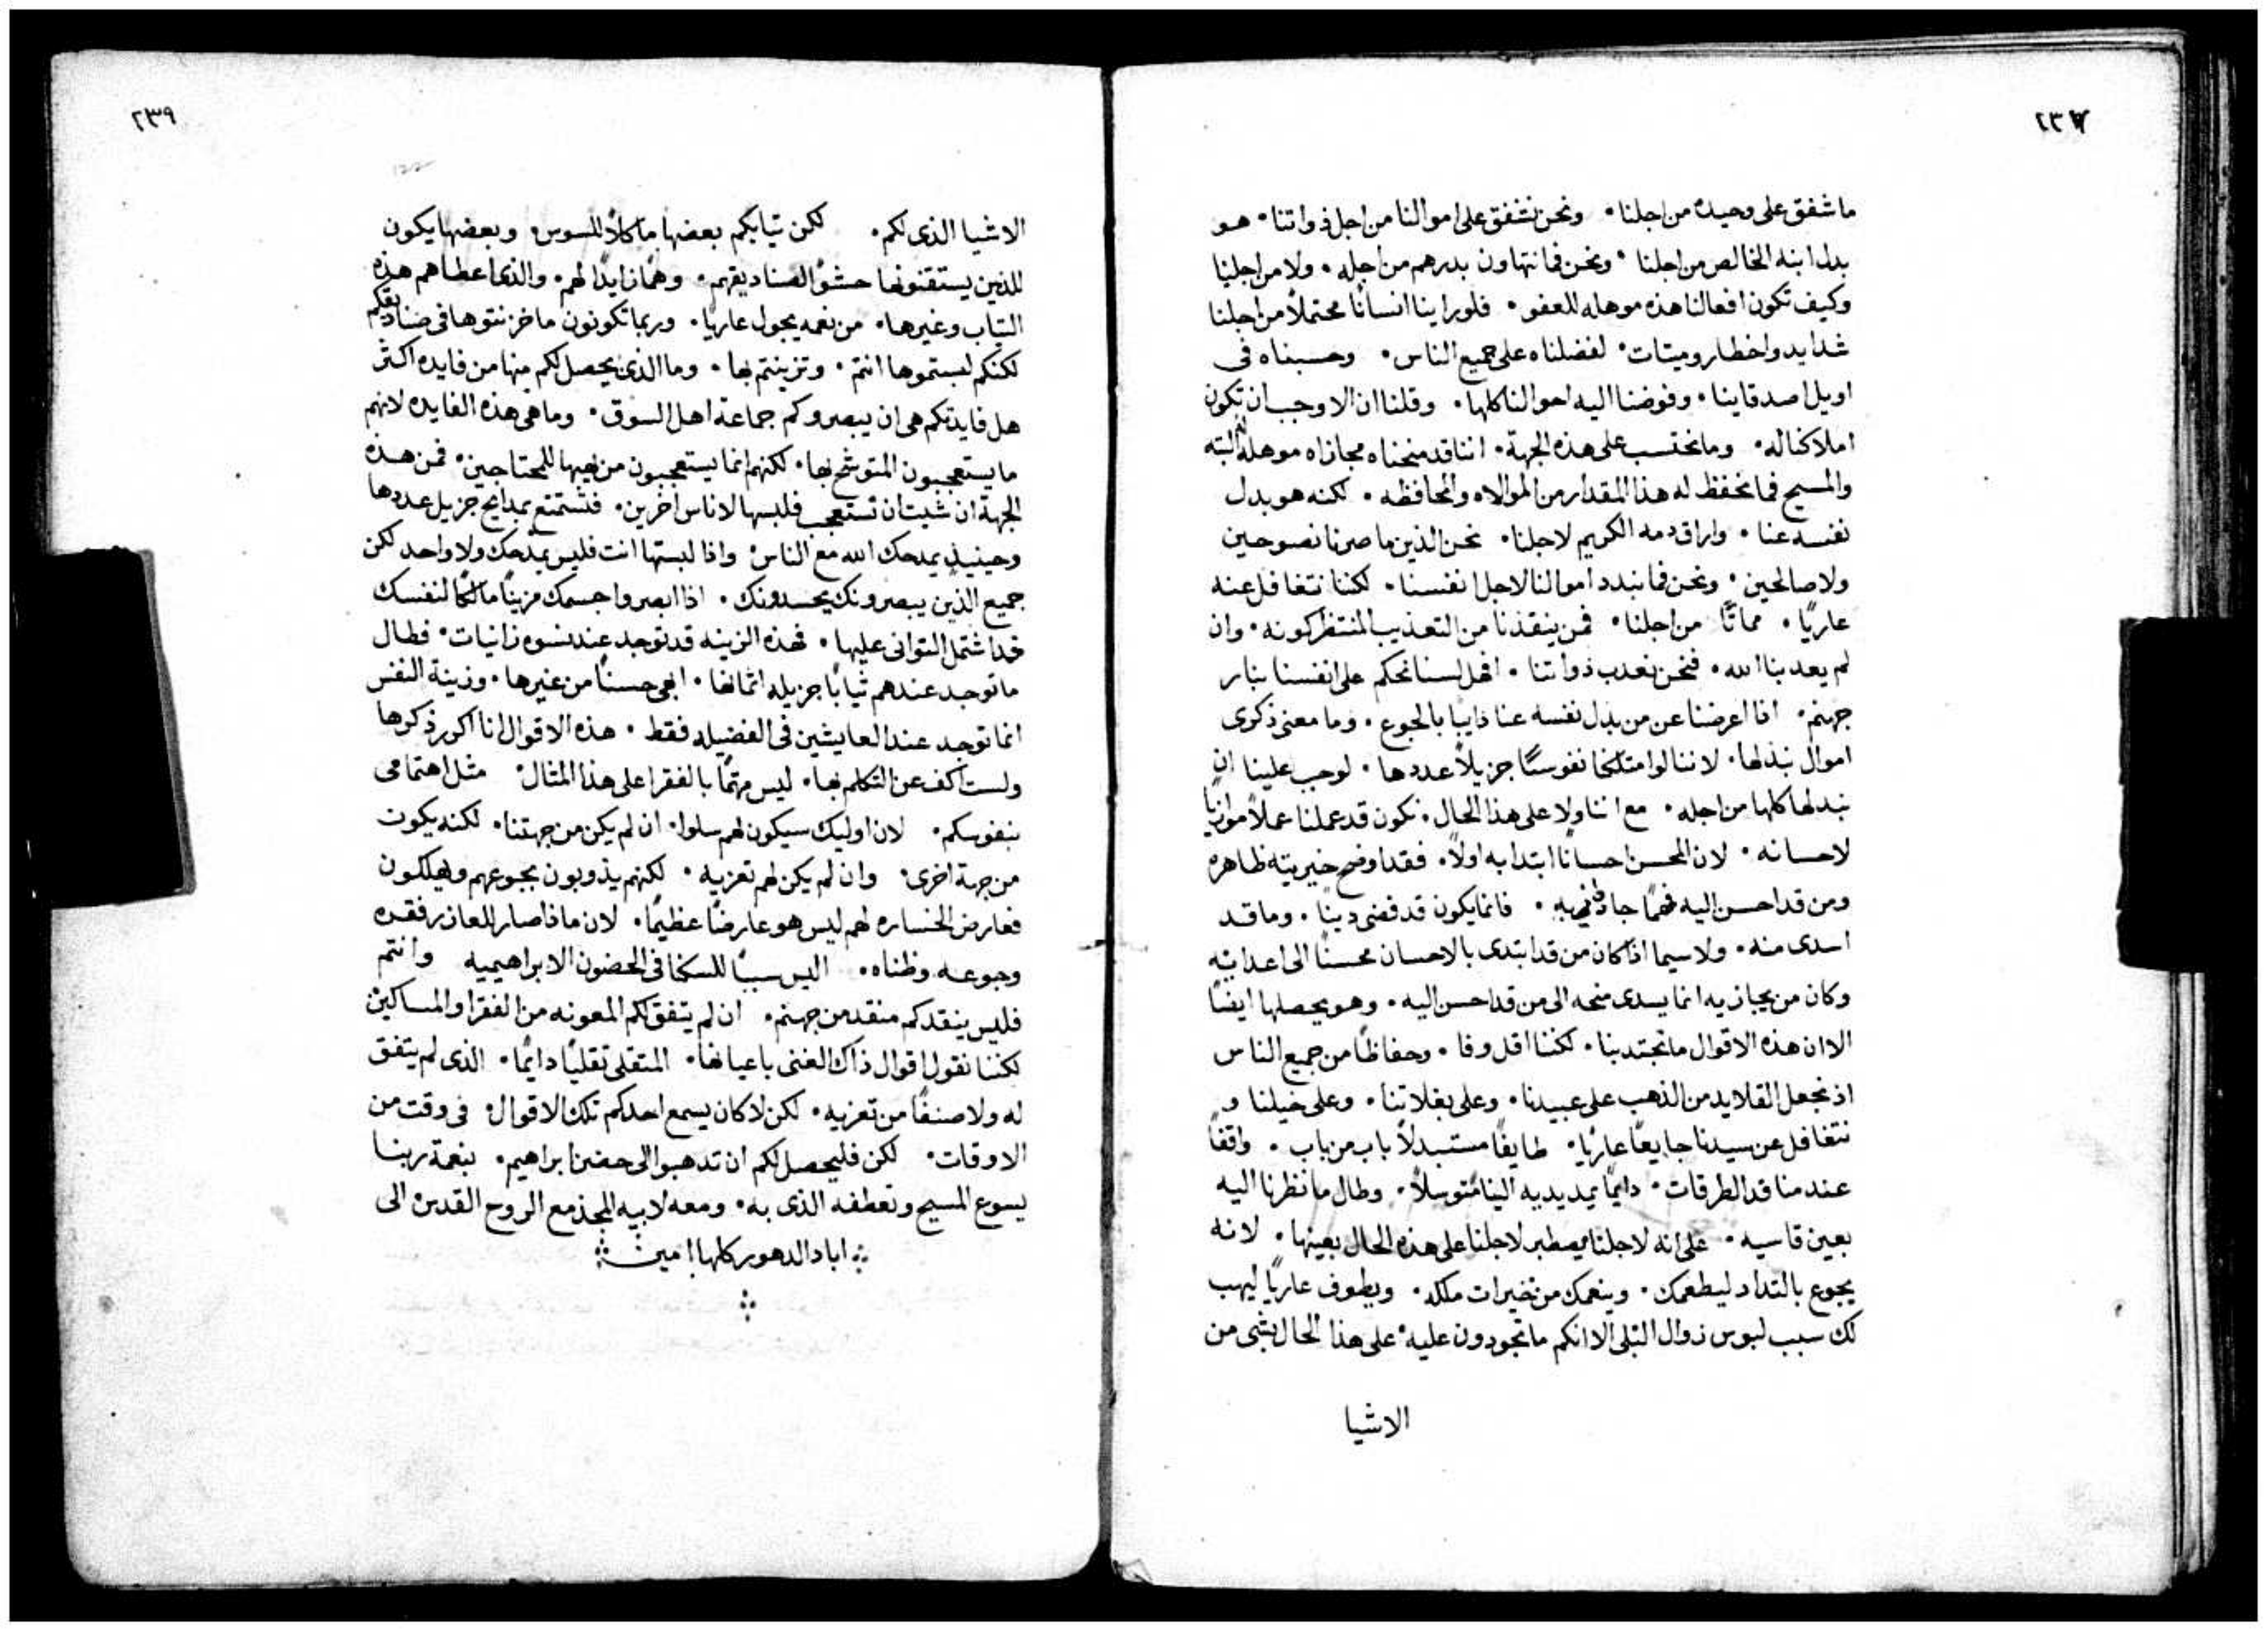 ٢٣٨
ما شفق على وحيده من اجلنا٠ ونحن نشفق على اموالنا من اجل ذواتنا٠ هو
بدل ابنه الخالص من اجلنا٠ ونحن فما نتهاون بدرهم من اجله٠ ولا من اجلنا
وكيف تكون افعالنا هذه موهله للعفو٠ فلو راينا انسانًا محتملًا من اجلنا
شدايد واخطار وميتات٠ لفضلناه على جميع الناس٠ وحسبناه فى
اويل اصدقاينا٠ وفوضنا اليه احوالنا كلها٠ وقلنا ان الاوجب ان تكون
املاكنا له٠ وما نحتسب على هذه الجهة٠ اننا قد منحناه مجازاه موهله له البته
والمسيح فما نحفظ له هذا المقدار من الموالاه والمحافظه٠ لكنه هو بدل
نفسه عنا٠ واراق دمه الكريم لاجلنا٠ نحن الذين ما صرنا نصوحين
ولا صالحين٠ ونحن فما نبدد اموالنا لاجل انفسنا٠ لكنا نتغافل عنه
عاريًا٠ مماتًا من اجلنا٠ فمن ينقذنا من التعذيب المنتظر كونه٠ وان
لم يعدبنا الله٠ فنحن نعدب ذواتنا٠ افهل لسنا نحكم على انفسنا بنار
جهنم٠ اذا اعرضنا عن من بدل نفسه عنا دايبا بالجوع٠ وما معنى ذكرى
اموال نبذلها٠ لاننا لو امتلكنا نفوسًا جزيلًا عددها٠ لوجب علينا ان
نبدلها كلها من اجله٠ مع اننا ولا على هذا الحال٠ نكون قد عملنا عملًا موازيًا
لاحسانه٠ لان المحسن احسانًا ابتدا به اولًا٠ فقد اوضح خيريته ظاهره
ومن قد احسن اليه فمهما جاد به٠ فانما يكون قد قضى دينًا٠ وما قد
اسدى منه٠ ولا سيما اذا كان من قد ابتدى بالاحسان محسنًا الى اعدايه
وكان من يجازيه انما يسدى منحه الى من قد احسن اليه٠ وهو يحصلها ايضًا
الا ان هذه الاقوال ما تجتدبنا٠ لكننا اقل وفا٠ وحفاظًا من جميع الناس
اذ نجعل القلايد من الذهب على عبيدنا٠ وعلى بغلاتنا٠ وعلى خيلنا و
نتغافل عن سيدنا جايعًا عاريًا٠ طايفًا مستبدلًا باب من باب٠ واقفًا
عند منافد الطرقات٠ دايمًا يمد يديه الينا متوسلًا٠ وطال ما نظرنا اليه
بعين قاسيه٠ على انه لاجلنا يصطبر لاجلنا على هذه الحال بعينها٠ لانه
يجوع بالتداد ليطعمك٠ وينعمك من خيرات ملكه٠ ويطوف عاريًا ليهب
لك سبب لبوس زوال البلى الا انكم ما تجودون عليه٠ على هذا الحال بشى من
الاشيا
٢٣٩
الاشيا الذى لكم٠ لكن تيابكم بعضها ماكلًا للسوس٠ وبعضها يكون
للذين يستقنونها حشوًا لصناديقهم٠ وهمًا زايدًا لهم٠ والذى اعطاهم هذه
التياب وغيرها٠ من نعمه يجول عاريًا٠ وربما تكونون ما خزنتوها فى صناديقكم
لكنكم لبستموها انتم٠ وتزينتم بها٠ وما الذى يحصل لكم منها من فايده اكثر
هل فايدتكم هى ان يبصروكم جماعة اهل السوق٠ وما هى هذه الفايده لانهم
ما يستعجبون المتوشح بها٠ لكنهم انما يستعجبون من يهبها للمحتاجين٠ فمن هذه
الجهة ان شيت ان تستعجب فلبسها لاناس اخرين٠ فتستمتع بمدايح جزيل عددها
وحينيذٍ يمدحك الله مع الناس٠ واذا لبستها انت فليس يمدحك ولا واحد لكن
جميع الذين يبصرونك يحسدونك٠ اذا ابصروا جسمك مزينًا مالكًا لنفسك
قد اشتمل التوانى عليها٠ فهذه الزينه قد توجد عند نسوه زانيات٠ فطال
ما توجد عندهم ثيابًا جزيله اثمانها٠ ابهى حسنًا من غيرها٠ وزينة النفس
انما توجد عند العايشين فى الفضيله فقط٠ هذه الاقوال انا اكرر ذكرها
ولست اكف عن التكلم بها٠ ليس مهتمًا بالفقرا على هذا المثال٠ مثل اهتمامى
بنفوسكم٠ لان اوليك سيكون لهم سلوا٠ ان لم يكن من جهتنا٠ لكنه يكون
من جهة اخرى٠ وان لم يكن لهم تعزيه٠ لكنهم يذوبون بجوعهم ويهلكون
فعارض الخساره لهم ليس هو عارضًا عظيمًا٠ لان ماذا صار للعازر فقره
وجوعه وظناه٠ اليس سببًا للسكنا فى الحضون الابراهيميه وانتم
فليس ينقدكم منقد من جهنم٠ ان لم يتفق لكم المعونه من الفقرا والمساكين
لكننا نقول اقوال ذاك الغنى باعيانها٠ المتقلى تقليًا دايمًا٠ الذى لم يتفق
له ولا صنفًا من تعزيه٠ لكن لا كان يسمع احدكم تلك الاقوال٠ فى وقت من
الاوقات٠ لكن فليحصل لكم ان تدهبوا الى حضن ابراهيم٠ بنعمة ربنا
يسوع المسيح وتعطفه الذى به٠ ومعه لابيه المجد مع الروح القدس الى
اباد الدهور كلها امين